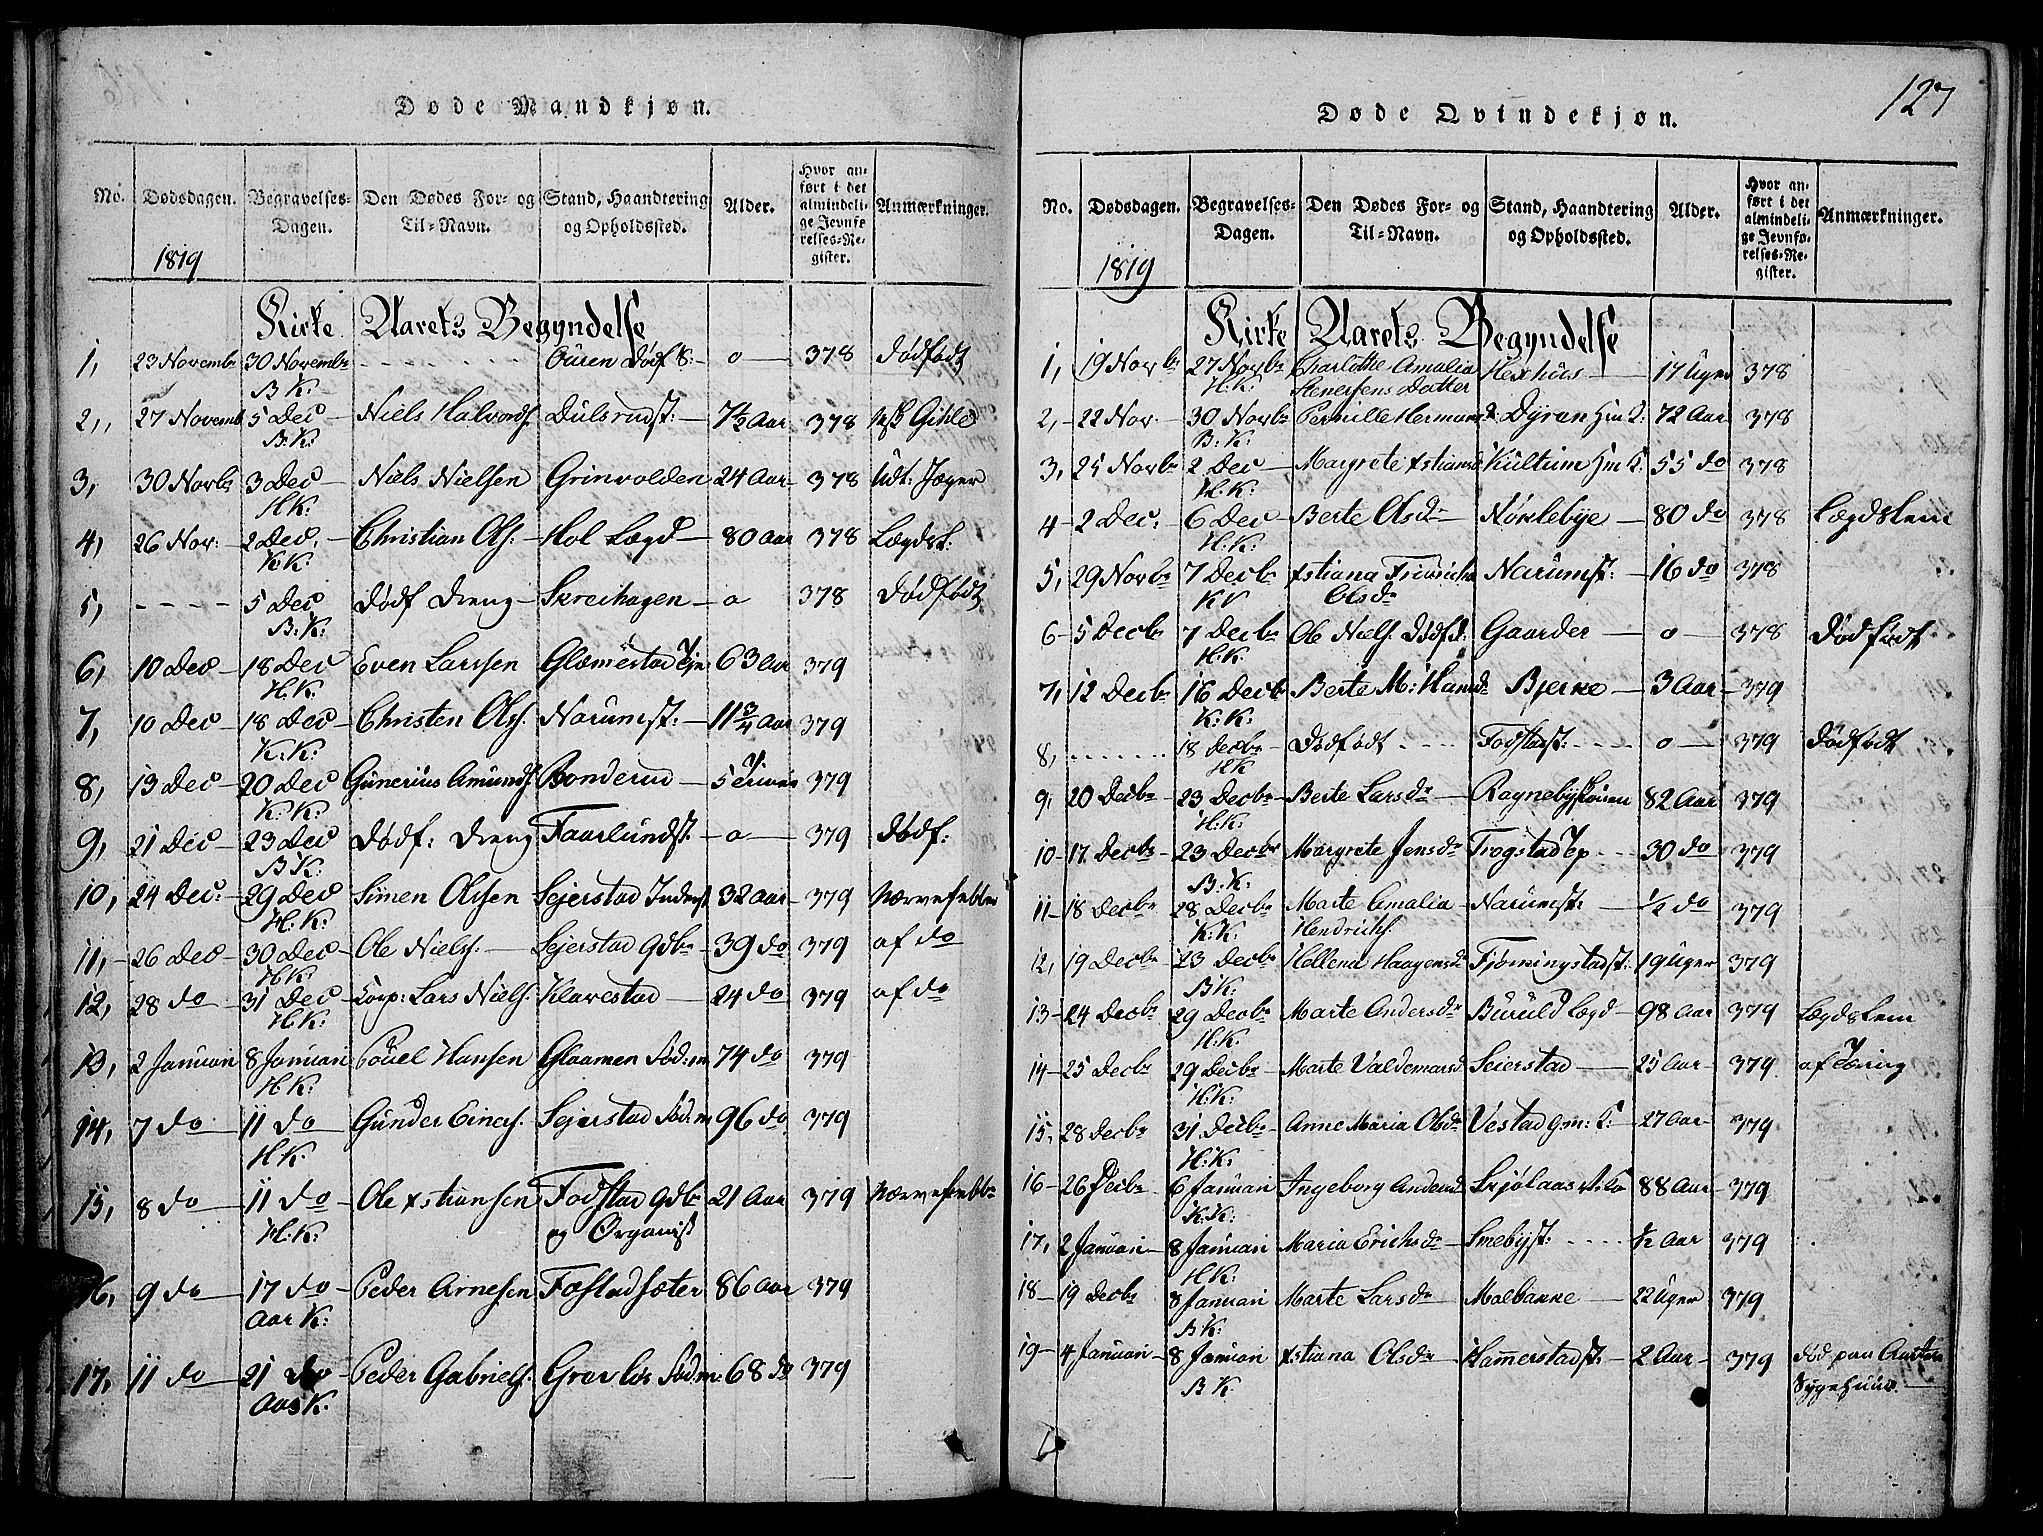 Døde Mandkjøn.
No. Dødsdagen. Begravelses-Dagen. Den Dødes For- og Til-Navn. Stand, Haandtering og Opholdssted. Alder. Hvor anført i det almindelige Jevnførelses-Register. Anmærkninger.
1819
Kirke Aarets Begyndelse
1, 23 Novembr 30 Novembr B K: - - - Dødf S: o 378 Dødfødt
2, 27 Novemb 5 Dec B.K: Niels Halvords. Dulsrudst: 7½ Aar 378
3, 30 Novbr 3 Dec H.K: Niels Nielsen Grinvolden 24 Aar 378 Udt: Jæger
4, 26 Nov: 2 Dec. K.K: Christian Ols: Hol Lægd 80 Aar 378 Lægdsl:
5, - - - - 5 Dec B:K: Dødf Dreng Skreihagen o 378 Dødfødt
6, 10 Dec 18 Dec H.K: Even Larssen Glæmestad 63 Aar 379
7, 10 Dec 18 Dec K.K: Christen Ols. Narumst: 11¾ Aar 379
8, 13 Dec 20 Dec K.K: Gunerius Amunds. Bonderud 5 Timer 379
9, 21 Dec 23 Dec B K: Dødf: Dreng Faarlundst. o 379 Dødf:
10, 24 Dec: 29 Dec H.K: Simen Olssen Sejerstad Inderst 32 Aar 379 Nervefebber
11, 26 Dec 30 Dec H.K: Ole Niels: Sejerstad Gdbr 39 do 379 af do
12, 28 do 31 Dec H.K: Corp: Lars Niels. Klavestad 24 do 379 af do
13, 2 Januari 8 Januari H.K: Poüel Hansen Glaamen Fød:m 74 do 379
14, 7 do 11 do H.K: Gunder Einers. Sejerstad Fød:m 96 do 379
15, 8 do 11 do H.K: Ole Xstiansen Fodstad Gdbr og Organist 21 Aar 379 Nervefebbr
16, 9 do 17 do Aas K: Peder Arnesen Fostadsæter 86 Aar 379
17, 11 do 21 do Aas K: Peder Gabriels. Gravlös Fød:m: 68 do 379
127
Døde Qvindekjøn.
No. Dødsdagen. Begravelses-Dagen. Den Dødes For- og Til-Navn. Stand, Haandtering og Opholdssted. Alder. Hvor anført i det almindelige Jevnførelses-Register. Anmærkninger.
1819
Kirke Aarets Begyndelse
1, 19 Novbr 27 Novbr H.K: Charlotte Amalia Stenersens Datter Hexhus 17 Uger 378
2, 22 Nov. 30 Novbr B.K: Pernille Hermansd. Dyran Hm K: 72 Aar 378
3, 25 Novbr 2 Dec H.K: Margrete Xstiansd Kultum Hm K. 55 do 378
4 2 Dec: 6 Dec H.K: Berte Olsdr Nøklebye 80 do 378 Lægdslem
5, 29 Novbr 7 Decbr KK Xstiana Fridricha Olsdr Narumst: 16 do 378
6 5 Decbr 7 Decbr H.K: Ole Niels. Dødfd: Gaarder o 378 Dødfødt
7, 12 Decbr 16 Decbr K.K: Berte M: Hansdr Bjerke 3 Aar 379
8, - - - 18 Decbr HK Dødfødt - - - Fodstadst: o 379 Dødfødt
9, 20 Decbr 23 Decbr H:K: Berte Larsdr Ragneby 82 Aar 379
10 17 Decbr 23 Decbr B.K: Margrete Jensdr Trogstad Ep 30 do 379
11 18 Decbr 28 Decbr K.K: Marte Amalia Hendrichs. Narumst: ½ do 379
12, 19 Decbr 23 Decbr BK: Hellena Haagensd Fjørningstadst: 19 Uger 379
13 24 Decbr 29 Decbr H.K: Marte Andersdr Buruld Lægd 98 Aar 379 Lægdslem
14 25 Decbr 29 Decbr H.K: Marte Valdemarsd Seierstad 25 Aar 379 af Tæring
15, 28 Decbr 31 Decbr H:K: Anne Maria Olsdr Vestad Gm: K: 27 Aar 379
16 26 Decbr 6 Januari K.K: Ingeborg Andersd 88 Aar 379
17, 2 Januari 8 Januari H.K: Maria Erichsdr Smebyst: ½ Aar 379
18 19 Decbr 8 Januari B.K: Marte Larsdr Malbakke 22 Uger 379
19 4 Januari 8 Januari B K: Xstiana Olsdr Hamerstadst: 2 Aar 379 Død paa Sygehuus.